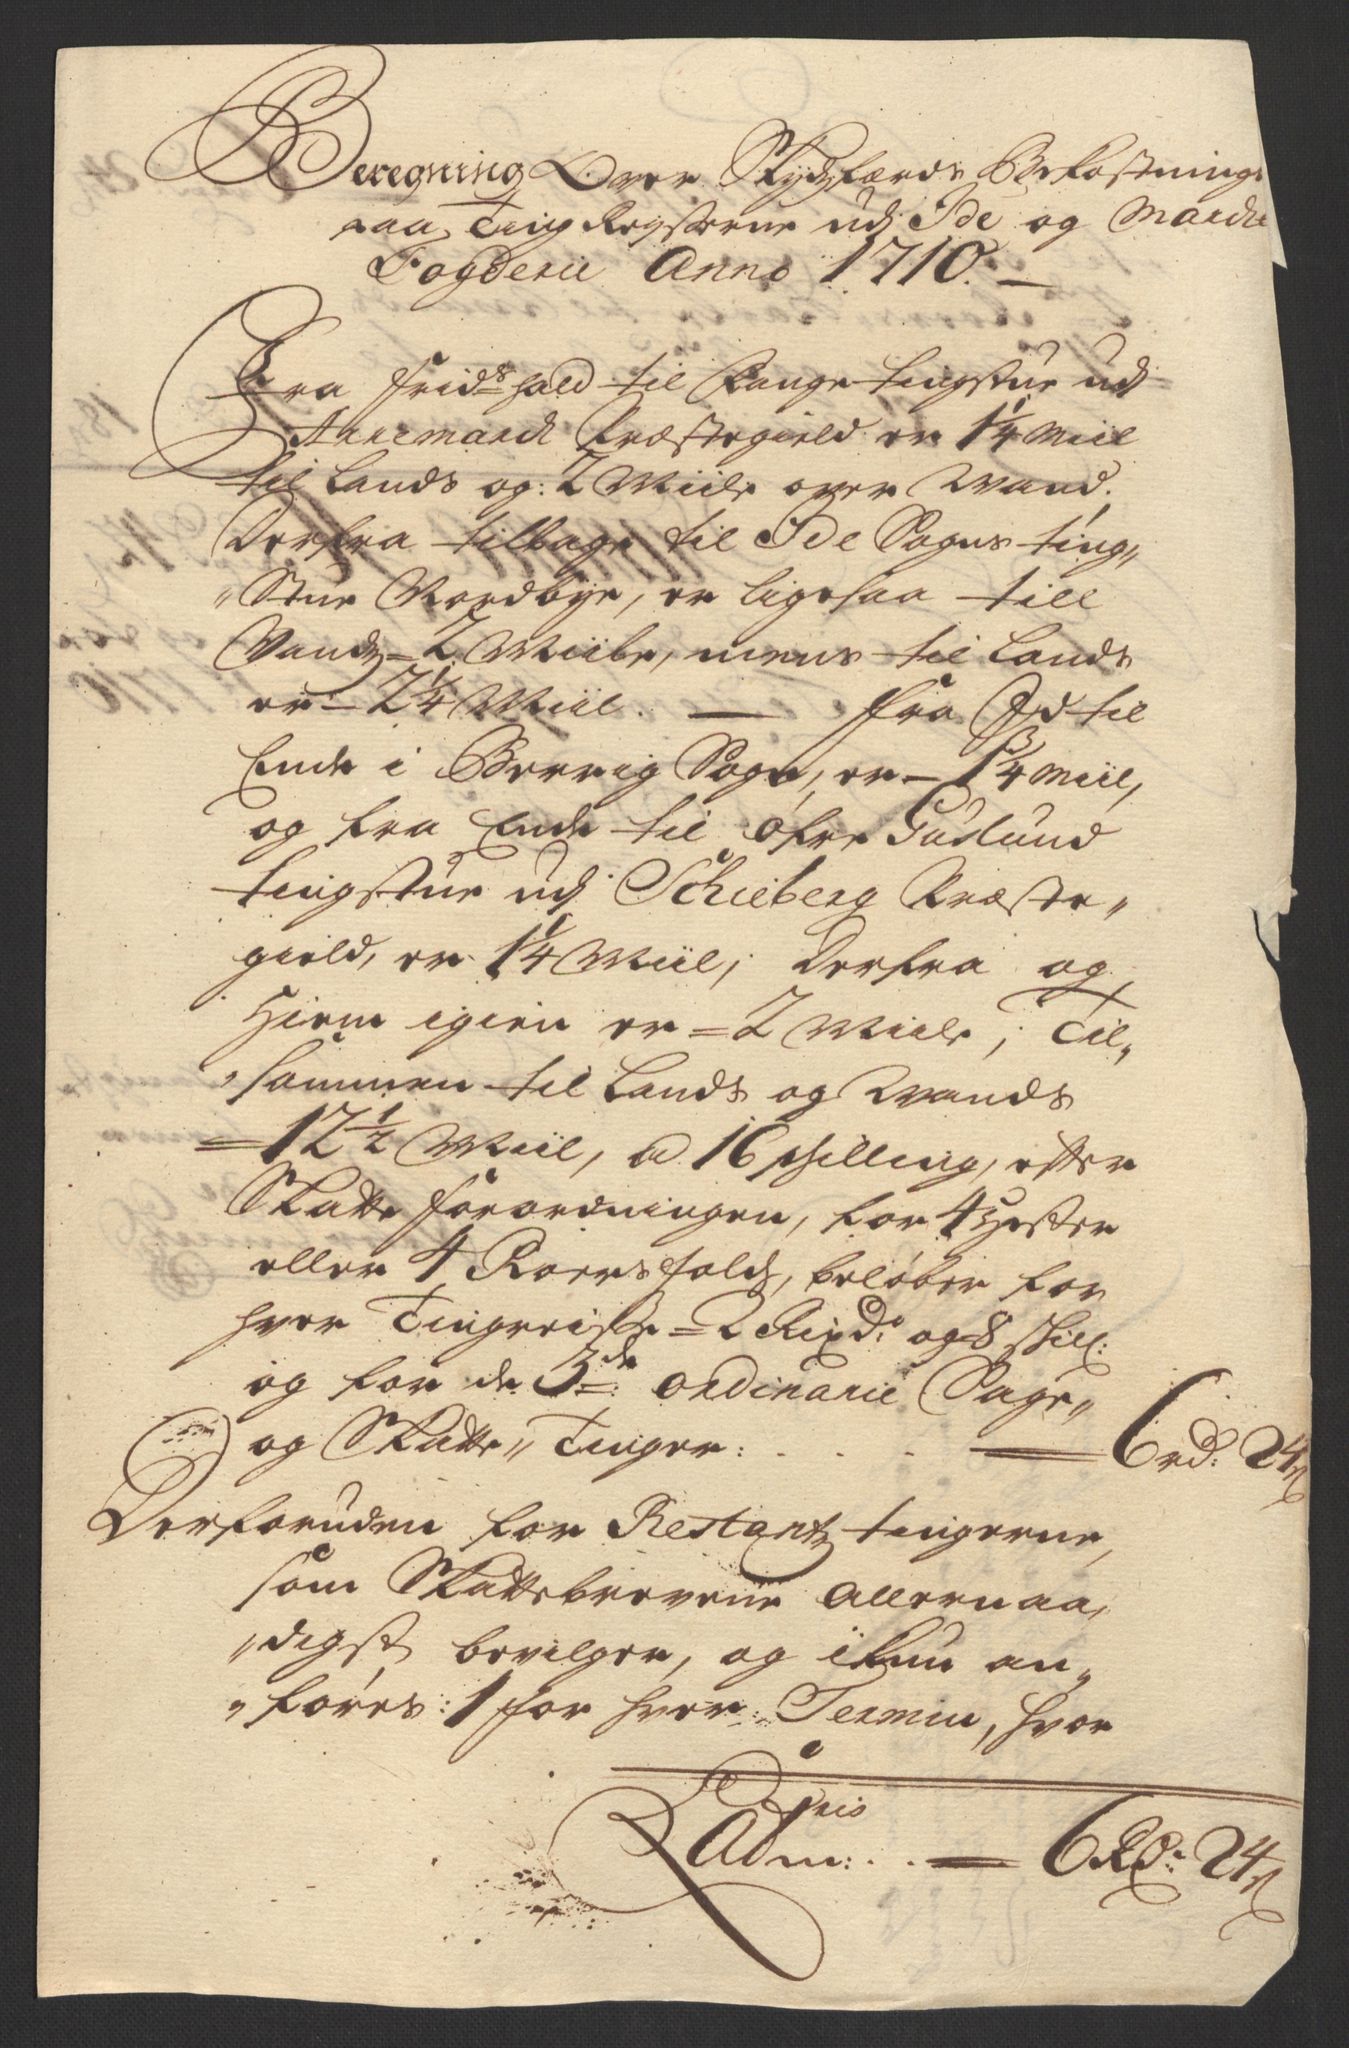 Beregning Over Skydsfærds Bekostning
paa Ting Reyserne udj Ide og Marche
Fogderie Anno 1710. —
Fra Frid:shald til Bange tingstue udj
Arremarch Præstegield er 1 1/4 Miil
til Lands og: 2 Miile over Wand.
Derfra tilbage til Ide Sogns ting„
„Stue Nordbye, er ligesaa till
Vands = 2 Miile, mens til Lands
er — 2 1/4 Miil. — fra Id til
Ende i Berrig Sogn, er — 1 3/4 Miil,
og fra Ende til øfre Gudlund
tingstue udj Schieberg Præste„
gield, er 1 1/4 Miil; Derfra og
Hiem igien er = 2 Miile; Til„
„sammen til Lands og Wands
= 12 1/2 Miil, a 16 skilling, efter
Skatte forordningen, for 4 Hester
eller 4 Roers hold, beløber for
hver Tingreise = 2 Rixd: og 8 skill:
og for de 3de: ordinarie Sage„
og Skatte„ Tinger: . . . . — 6 rd: 24 s
Derforuden for Restantz tingerne,
som Skattebrevene allernaa„
„digst bevilger, og ikun an„
„føres: 1 for hver Termin, hvor
Adm: . . — 6 Rd: 24 s